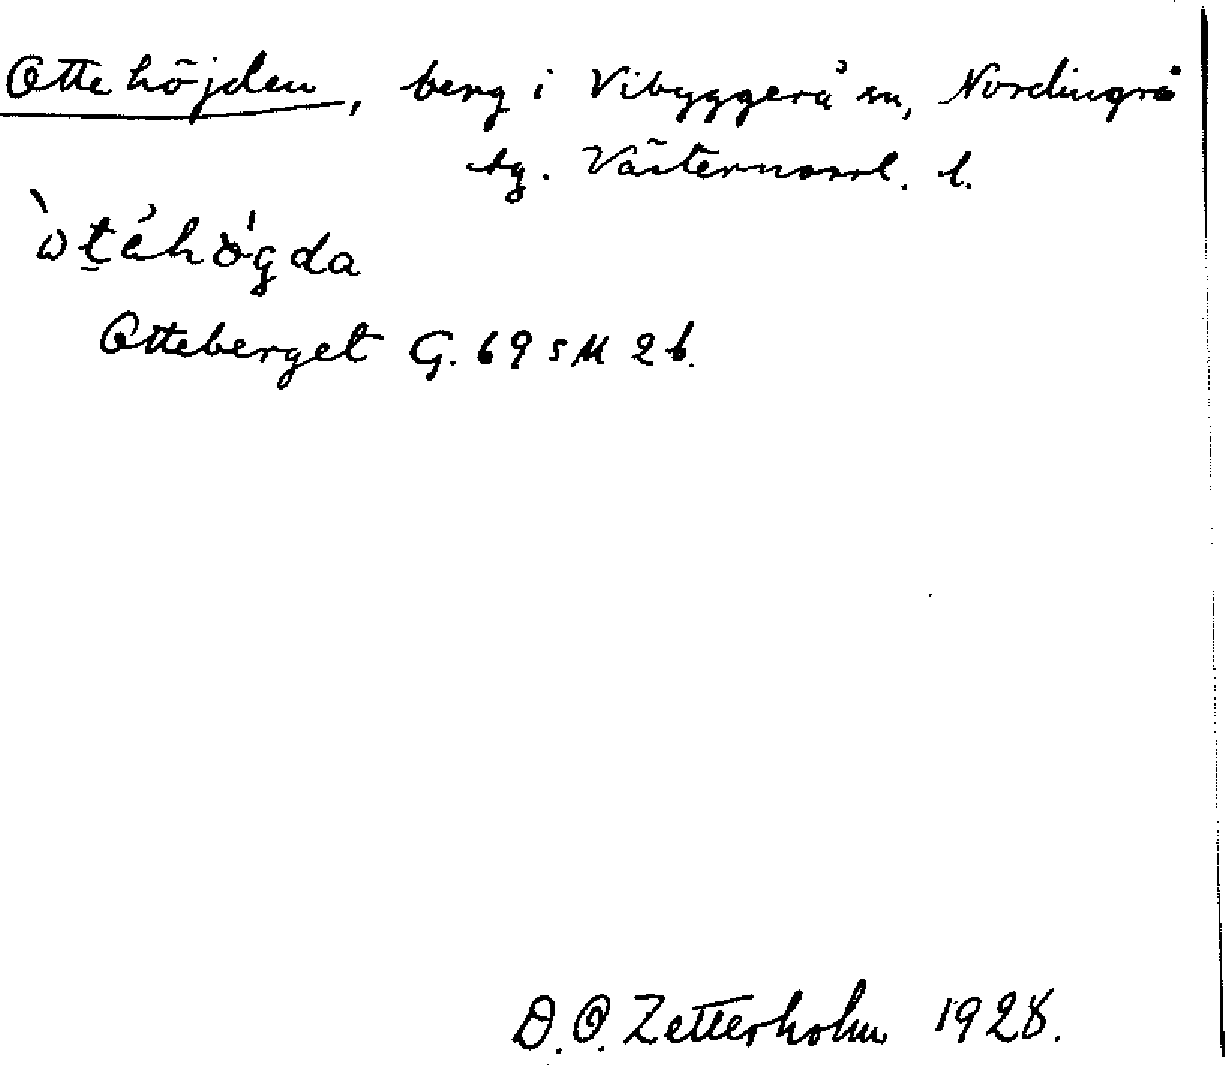 Ottehöjden, berg i Vibyggerå sn, Nordingrå
tg. Västernorrl. l.
ò̀ṯéhǿgda
Otteberget G. 69 s M 2 b.
D. O. Zetterholm 1928.